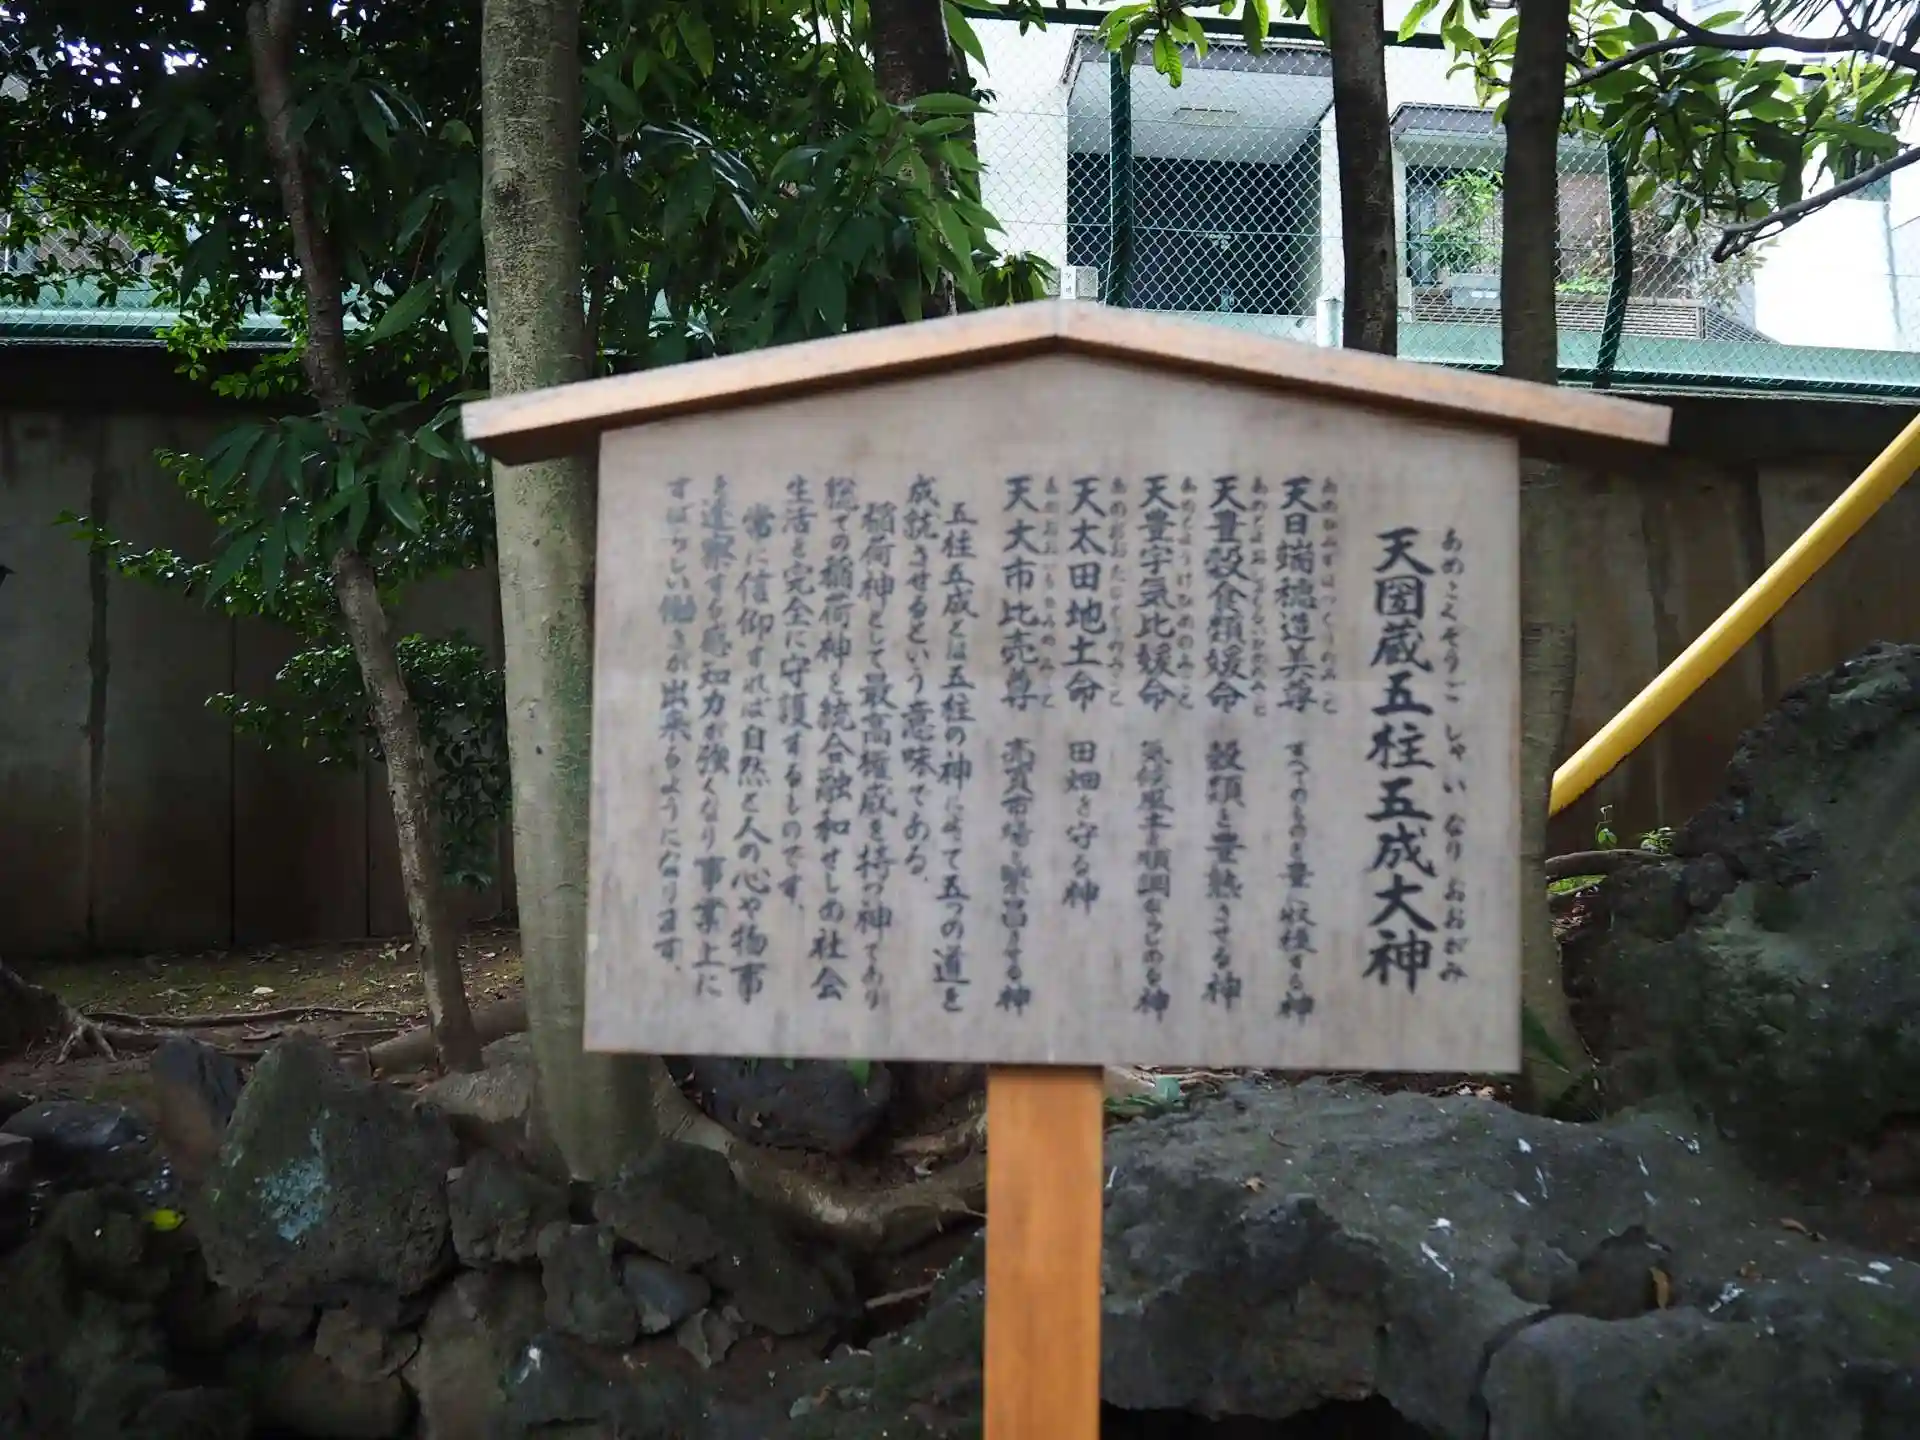 天国蔵五柱五成大神
あめこくそうごしゃいなりおおがみ
天日端穂造美尊 すべてのものを豊に収穫する神
あめひみずほつくりのみこと
天豊穀食類媛命 穀類を豊熟させる神
天豊宇気比媛命 気候風土を順調ならしめる神
あめとようけひめのみこと
天太田地土命 田畑を守る神
天大市比売尊 売買市場を繁昌させる神
あめおおいちひめのみこと
五柱五成とは五柱の神によって五つの道を
成就させるという意味である。
稲荷神として最高権威を持つ神であり
総ての稲荷神を統合融和せしめ社会
生活を完全に守護するものです。
常に信仰すれば自然と人の心や物事
を達察する感知力が強くなり事業上に
すばらしい働きが出来るようになります。